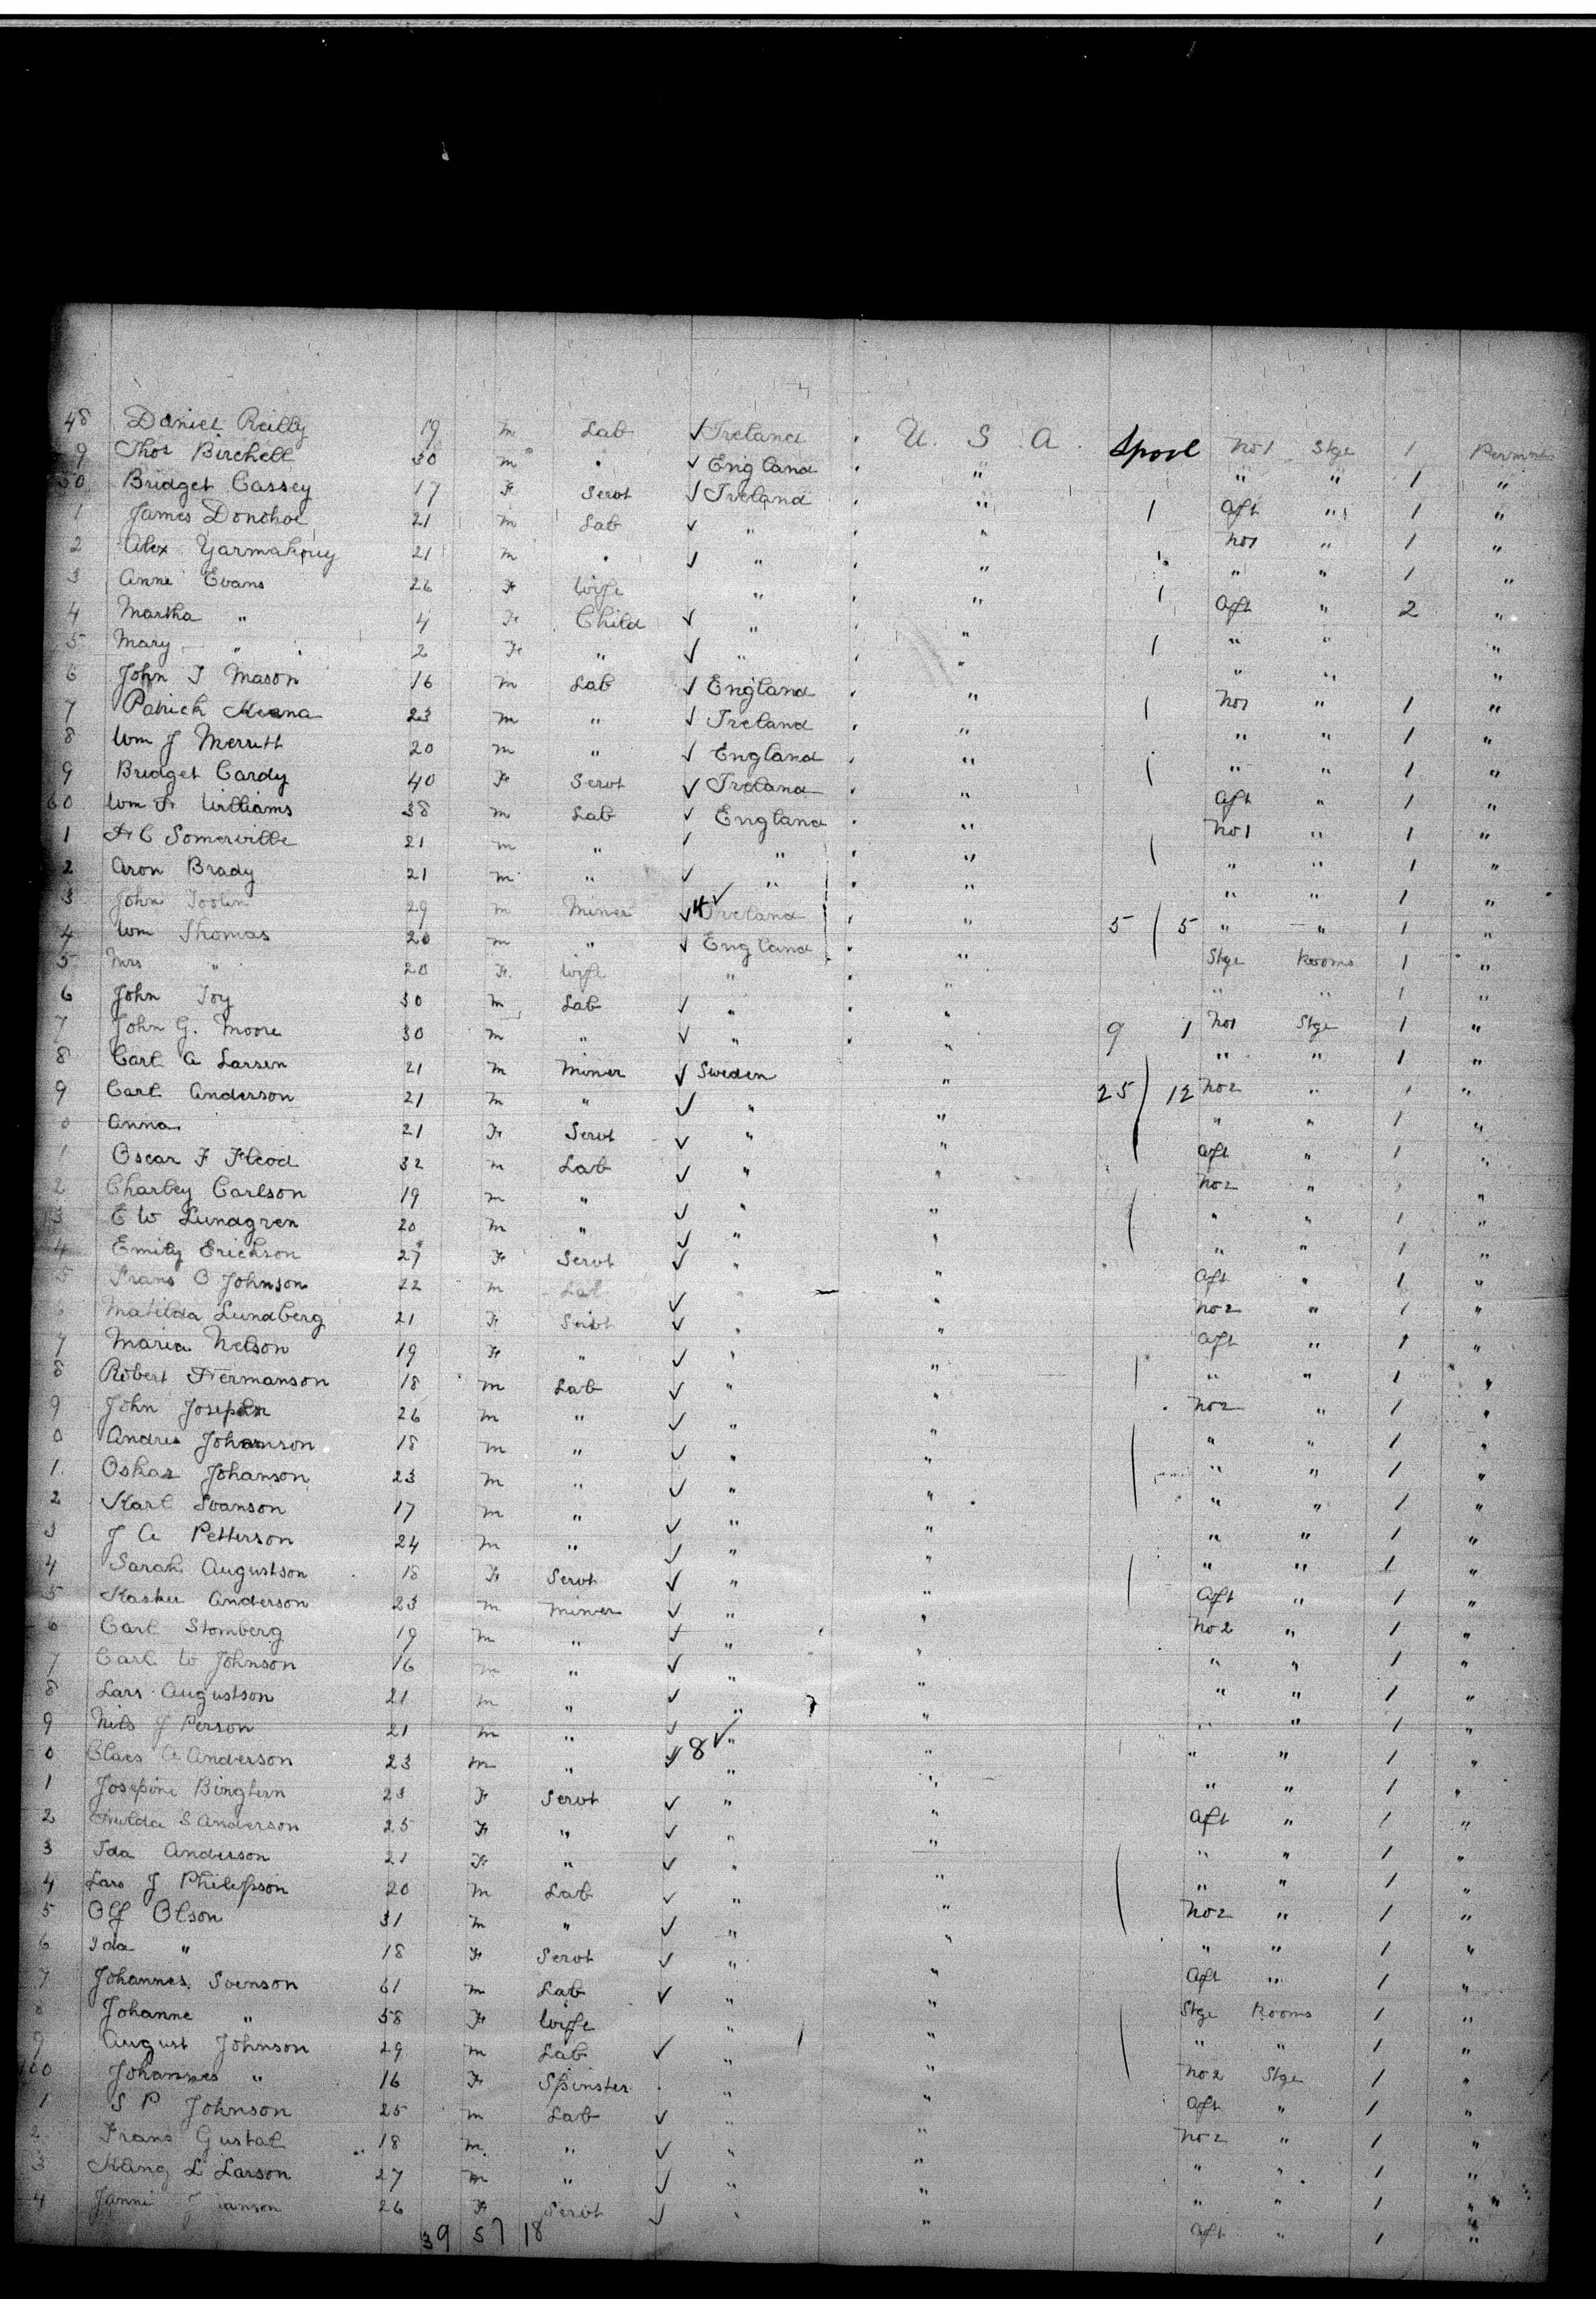 48 Daniel Reilly 19 m Lab ✓ Ireland U. S. A. Spool No 1 Stge 1 Permnt
9 Thos Birchell 30 m " ✓ England " " " 1 "
50 Bridget Cassey 17 F Servt ✓ Ireland " 1 Aft " 1 "
1 James Donohoe 21 m Lab ✓ " " No1 " 1 "
2 Alex 21 m " ✓ " " " " 1 "
3 Anne Evans 26 F Wife " " 1 Aft " 2 "
4 Martha " 4 F Child ✓ " " " " "
5 Mary " 2 F " ✓ " " 1 " " "
6 John T Mason 16 m Lab ✓ England " No1 " 1 "
7 Patrick Keena 23 m " ✓ Ireland " " " 1 "
8 Wm J Merritt 20 m " ✓ England " " " 1 "
9 Bridget Cardy 40 F Servt ✓ Ireland " Aft " 1 "
60 Wm F Williams 38 m Lab ✓ England " No1 " 1 "
1 H C Somerville 21 m " ✓ " " " " 1 "
2 Aron Brady 21 m " ✓ " " " " 1 "
3 John 29 m Miner ✓ Ireland " 5 5 " " 1 "
4 Wm Thomas 20 m " ✓ England " Stge Rooms 1 "
5 Mrs " 20 F Wife " " " " 1 "
6 John Toy 30 m Lab ✓ " " 9 1 No1 Stge 1 "
7 John G. Moore 30 m " ✓ " " " " 1 "
8 Carl A Larsen 21 m Miner ✓ Sweden " 25 12 No2 " 1 "
9 Carl Anderson 21 m " ✓ " " " " 1 "
0 Anna 21 F Servt ✓ " " Aft " 1 "
1 Oscar F 32 m Lab ✓ " " No2 " 1 "
2 Charley Carlson 19 m " ✓ " " " " 1 "
3 E W Lundgren 20 m " ✓ " " " " 1 "
4 Emily Erickson 27 F Servt ✓ " " Aft " 1 "
5 Frans O Johnson 22 m Lab ✓ " " No2 " 1 "
6 Matilda Lundberg 21 F Servt ✓ " " Aft " 1 "
7 Maria Nelson 19 F " ✓ " " " " 1 "
8 Robert Hermanson 18 m Lab ✓ " " No2 " 1 "
9 John 26 m " ✓ " " " " 1 "
0 Andres Johanson 18 m " ✓ " " " " 1 "
1 Oskar Johanson 23 m " ✓ " " " " 1 "
2 Karl Svanson 17 m " ✓ " " " " 1 "
3 J A Petterson 24 m " ✓ " " " " 1 "
4 Sarah Augustson 18 F Servt ✓ " " Aft " 1 "
5 Anderson 23 m Miner ✓ " " No2 " 1 "
6 Carl Stomberg 19 m " ✓ " " " " 1 "
7 Carl W Johnson 16 m " ✓ " " " " 1 "
8 Lars Augustson 21 m " ✓ " " " " 1 "
9 Nils J Person 21 m " ✓ " " " " 1 "
0 Claes A Anderson 23 m " ✓ 8 ✓ " " " " 1 "
1 Josepine 23 F Servt ✓ " " Aft " 1 "
2 Hulda S Anderson 25 F " ✓ " " " " 1 "
3 Ida Anderson 21 F " ✓ " " " " 1 "
4 Lars J Philipson 20 m Lab ✓ " " No2 " 1 "
5 Olf Olson 31 m " ✓ " " " " 1 "
6 Ida " 18 F Servt ✓ " " Aft " 1 "
7 Johannes Svenson 61 m Lab ✓ " " Stge Rooms 1 "
8 Johanne " 58 F Wife " " " " 1 "
9 August Johnson 29 m Lab ✓ " " No2 Stge 1 "
100 Johannes " 16 F Spinster " " Aft " 1 "
1 S P Johnson 25 m Lab ✓ " " No2 " 1 "
2 Frans Gustal 18 m " ✓ " " " " 1 "
3 L Larson 27 m " ✓ " " " " 1 "
4 26 F Servt ✓ " " Aft " 1 "
39 57 18